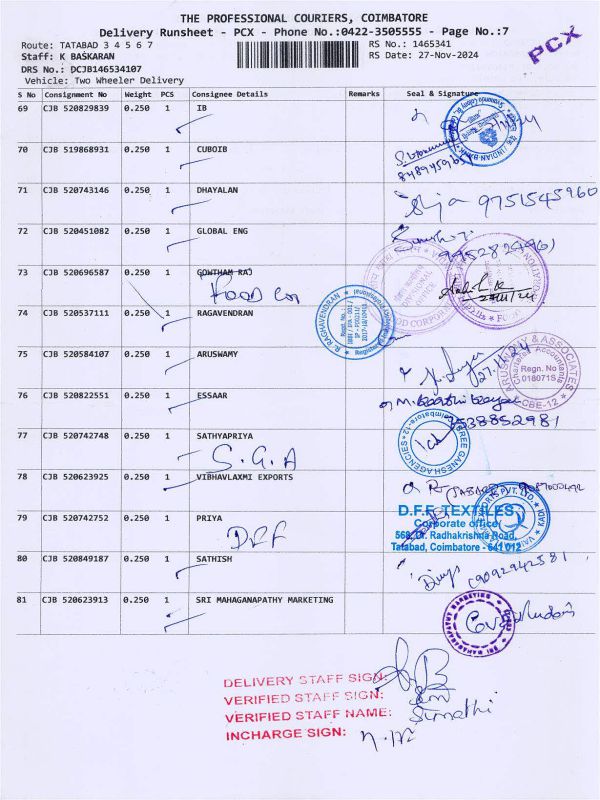 THE PROFESSIONAL COURIERS, COIMBATORE
Delivery Runsheet - PCX - Phone No.:0422-3505555 - Page No.:7
PCX
Route: TATABAD 3 4 5 6 7
RS No.: 1465341
Staff: K BASKARAN
RS Date: 27-Nov-2024
DRS No.: DCJB146534107
Vehicle: Two Wheeler Delivery
S No Consignment No Weight PCS Consignee Details Remarks Seal & Signature
69 CJB 520829839 0.250 1 IB
70 CJB 519868931 0.250 1 CUBOIB
71 CJB 520743146 0.250 1 DHAYALAN
9751545960
72 CJB 520451082 0.250 1 GLOBAL ENG
73 CJB 520696587 0.250 1 GOWTHAM RAJ
Food Cor
74 CJB 520537111 0.250 1 RAGAVENDRAN
R. RAGHAVENDRAN
75 CJB 520584107 0.250 1 ARUSWAMY
27.11.24
ARUSWAMY & ASSOCIATES
Chartered Accountants
Regn. No
018071S
CBE-12
76 CJB 520822551 0.250 1 ESSAAR
9538852981
77 CJB 520742748 0.250 1 SATHYAPRIYA
S.G.A
SREE GANESH AGENCIES
Coimbatore-12
78 CJB 520623925 0.250 1 VIBHAVLAXMI EXPORTS
79 CJB 520742752 0.250 1 PRIYA
D.F.F
D.F.F. TEXTILES
Corporate office
568, Dr. Radhakrishna Road,
Tatabad, Coimbatore - 641 012
80 CJB 520849187 0.250 1 SATHISH
9092942581
81 CJB 520623913 0.250 1 SRI MAHAGANAPATHY MARKETING
SRI MAHAGANAPATHY MARKETING
DELIVERY STAFF SIGN:
VERIFIED STAFF SIGN:
VERIFIED STAFF NAME: Sumathi
INCHARGE SIGN: